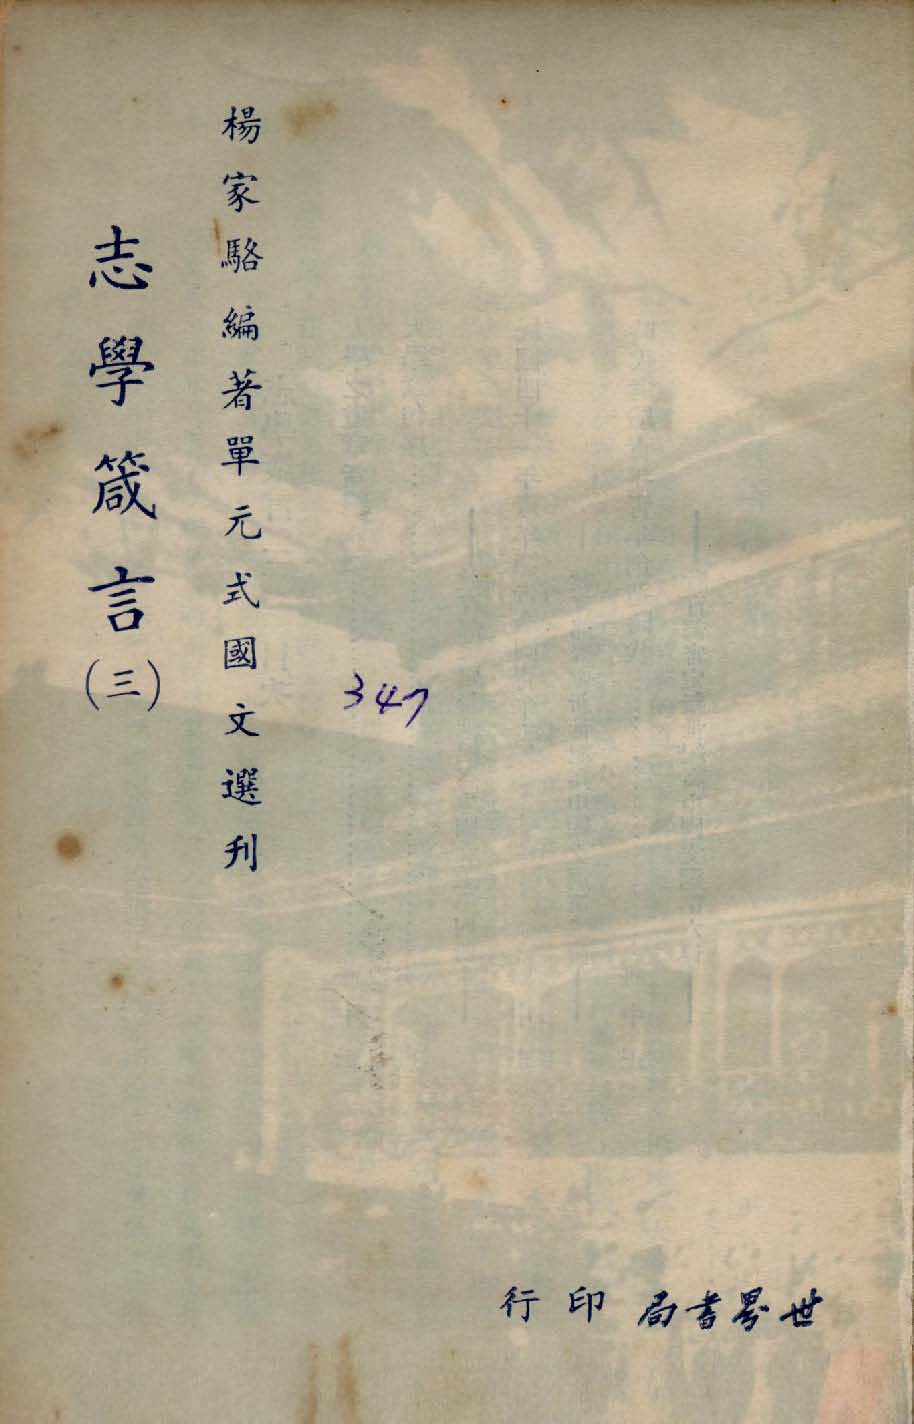 楊家駱編著單元式國文選刊
志學箴言(三)
347
世界書局印行